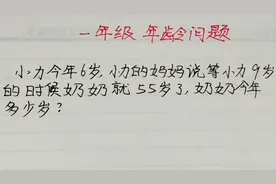 一年级 年龄问题
小力今年6岁,小力的妈妈说等小力9岁
的时候奶奶就55岁了,奶奶今年
多少岁?